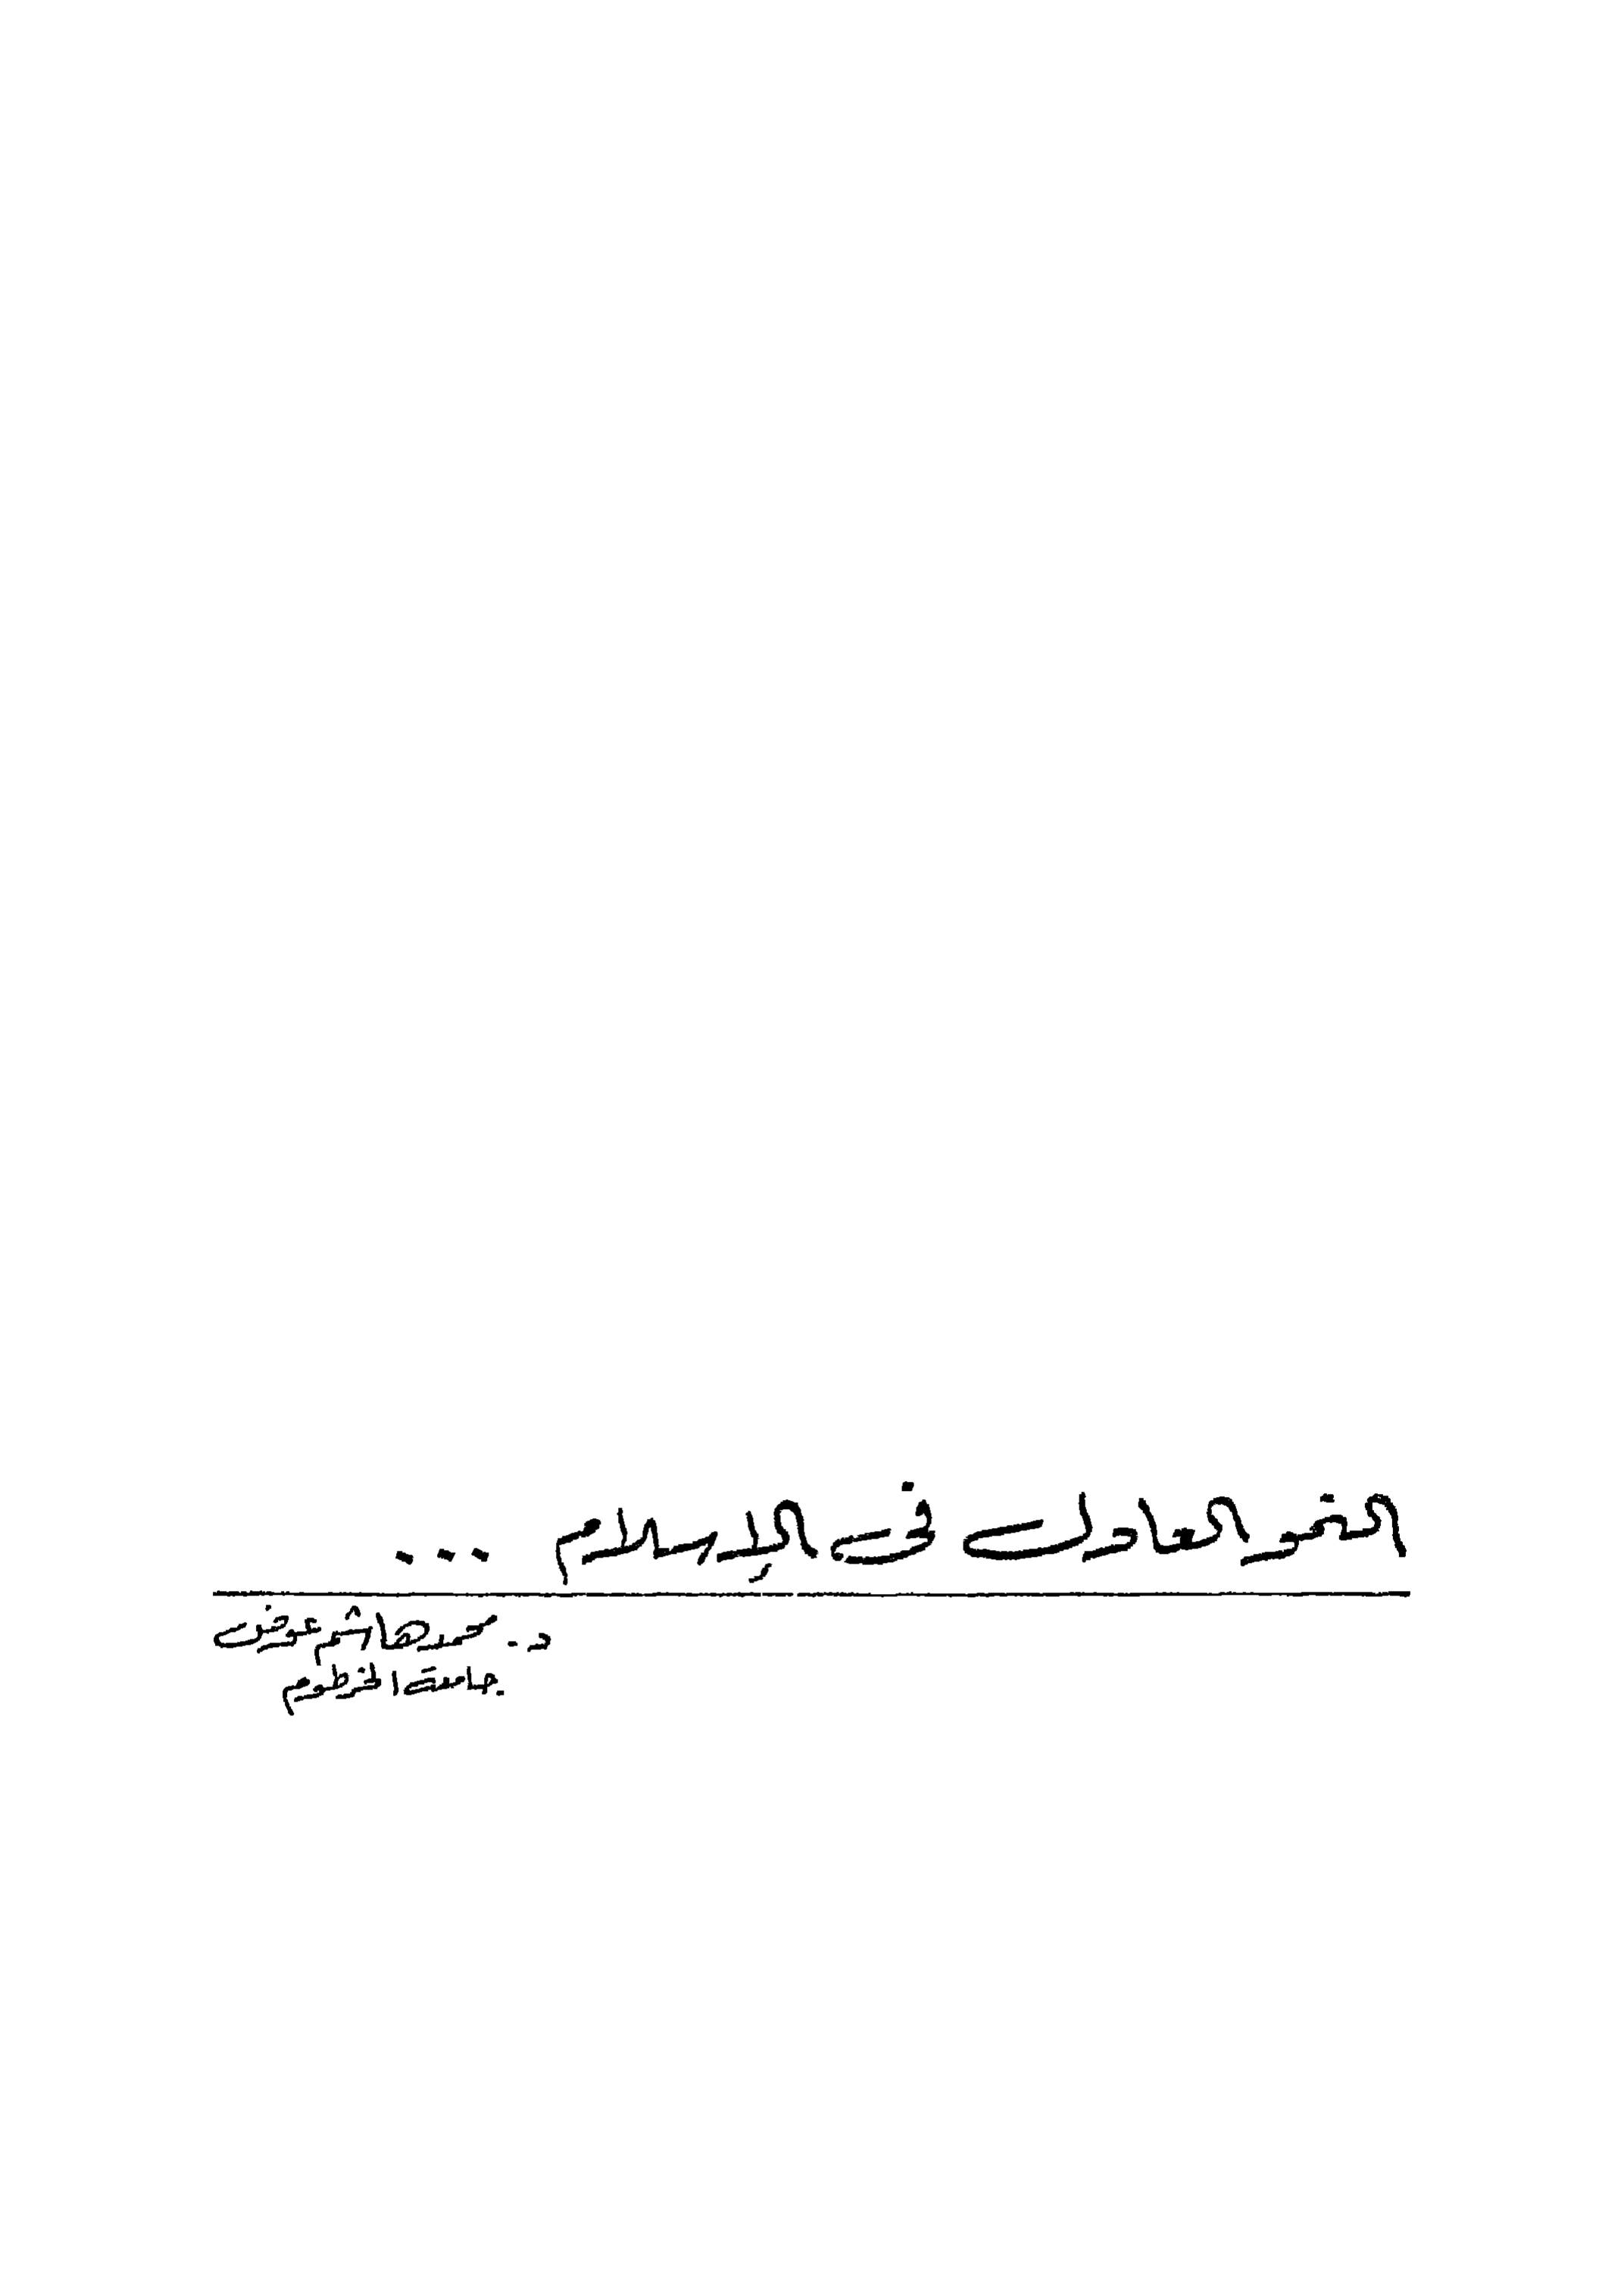 النمو العادل في الإسلام ...
د. محمد هاشم عوض
جامعة الخرطوم